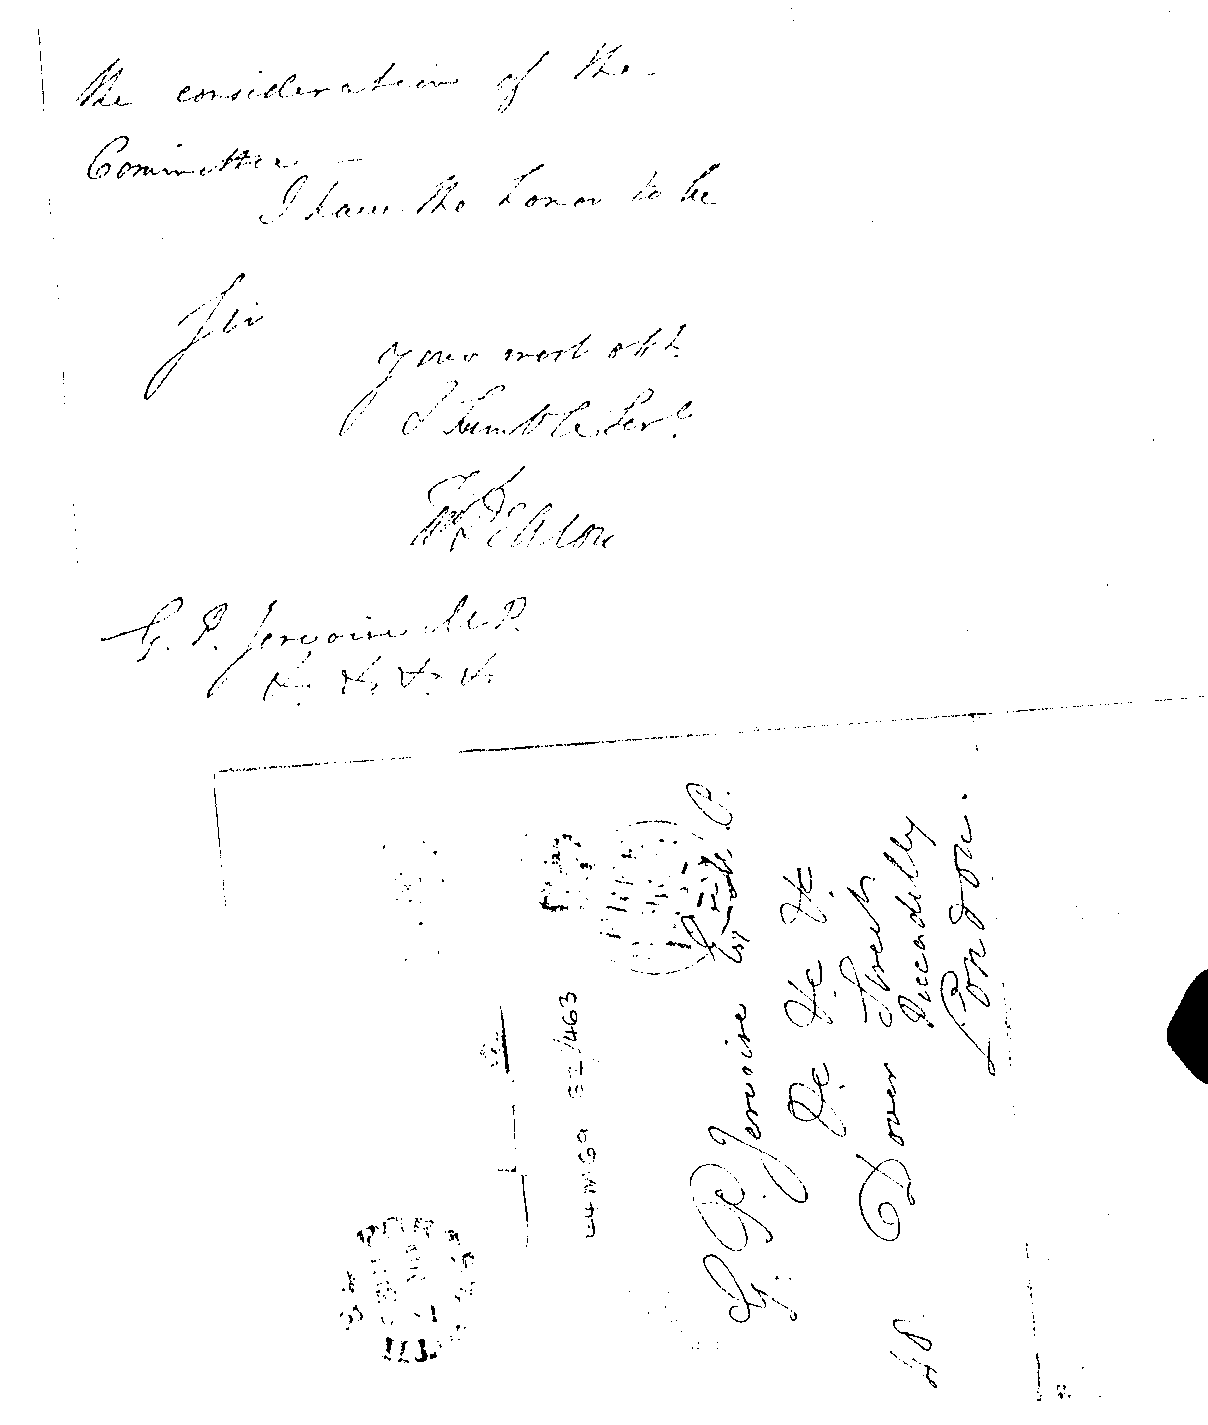 the consideration of the
Committee —
I have the honor to be
Sir
your most obt.
& humble Servt.
G. P. Jervoise M.P.
&c. &c. &c. &c.
G. P. Jervoise Esqr M.P.
&c &c &c
48 Dover Street
Piccadilly
London.
44M69 E2/463
FREE